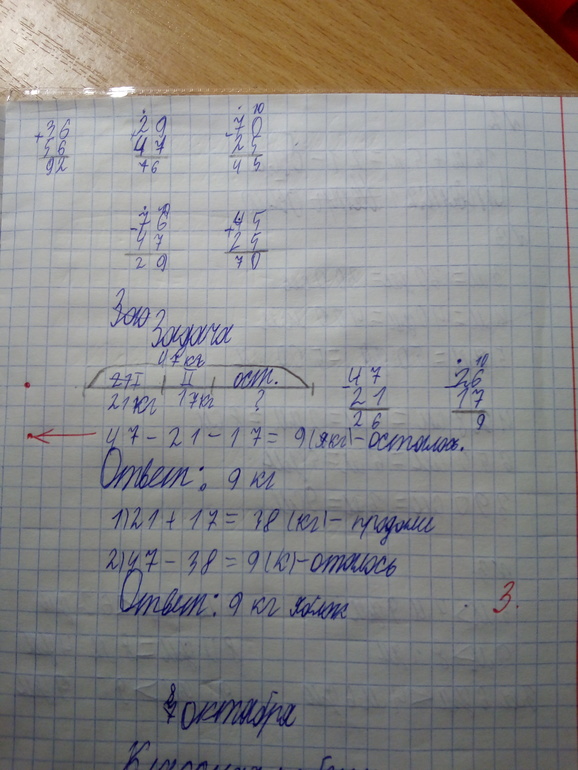 36 29 70 10
+ - 
56 47 25
92 76 45
76 45
- +
47 25
29 70
Зад Задача
47 кг
I II ост. 47 26 10
- -
21 кг 17 кг ? 21 17
26 9
47 - 21 - 17 = 9 (кг) - осталось.
Ответ: 9 кг
1) 21 + 17 = 38 (кг) - продали
2) 47 - 38 = 9 (к) - оталось
Ответ: 9 кг яблок
3.
октабря